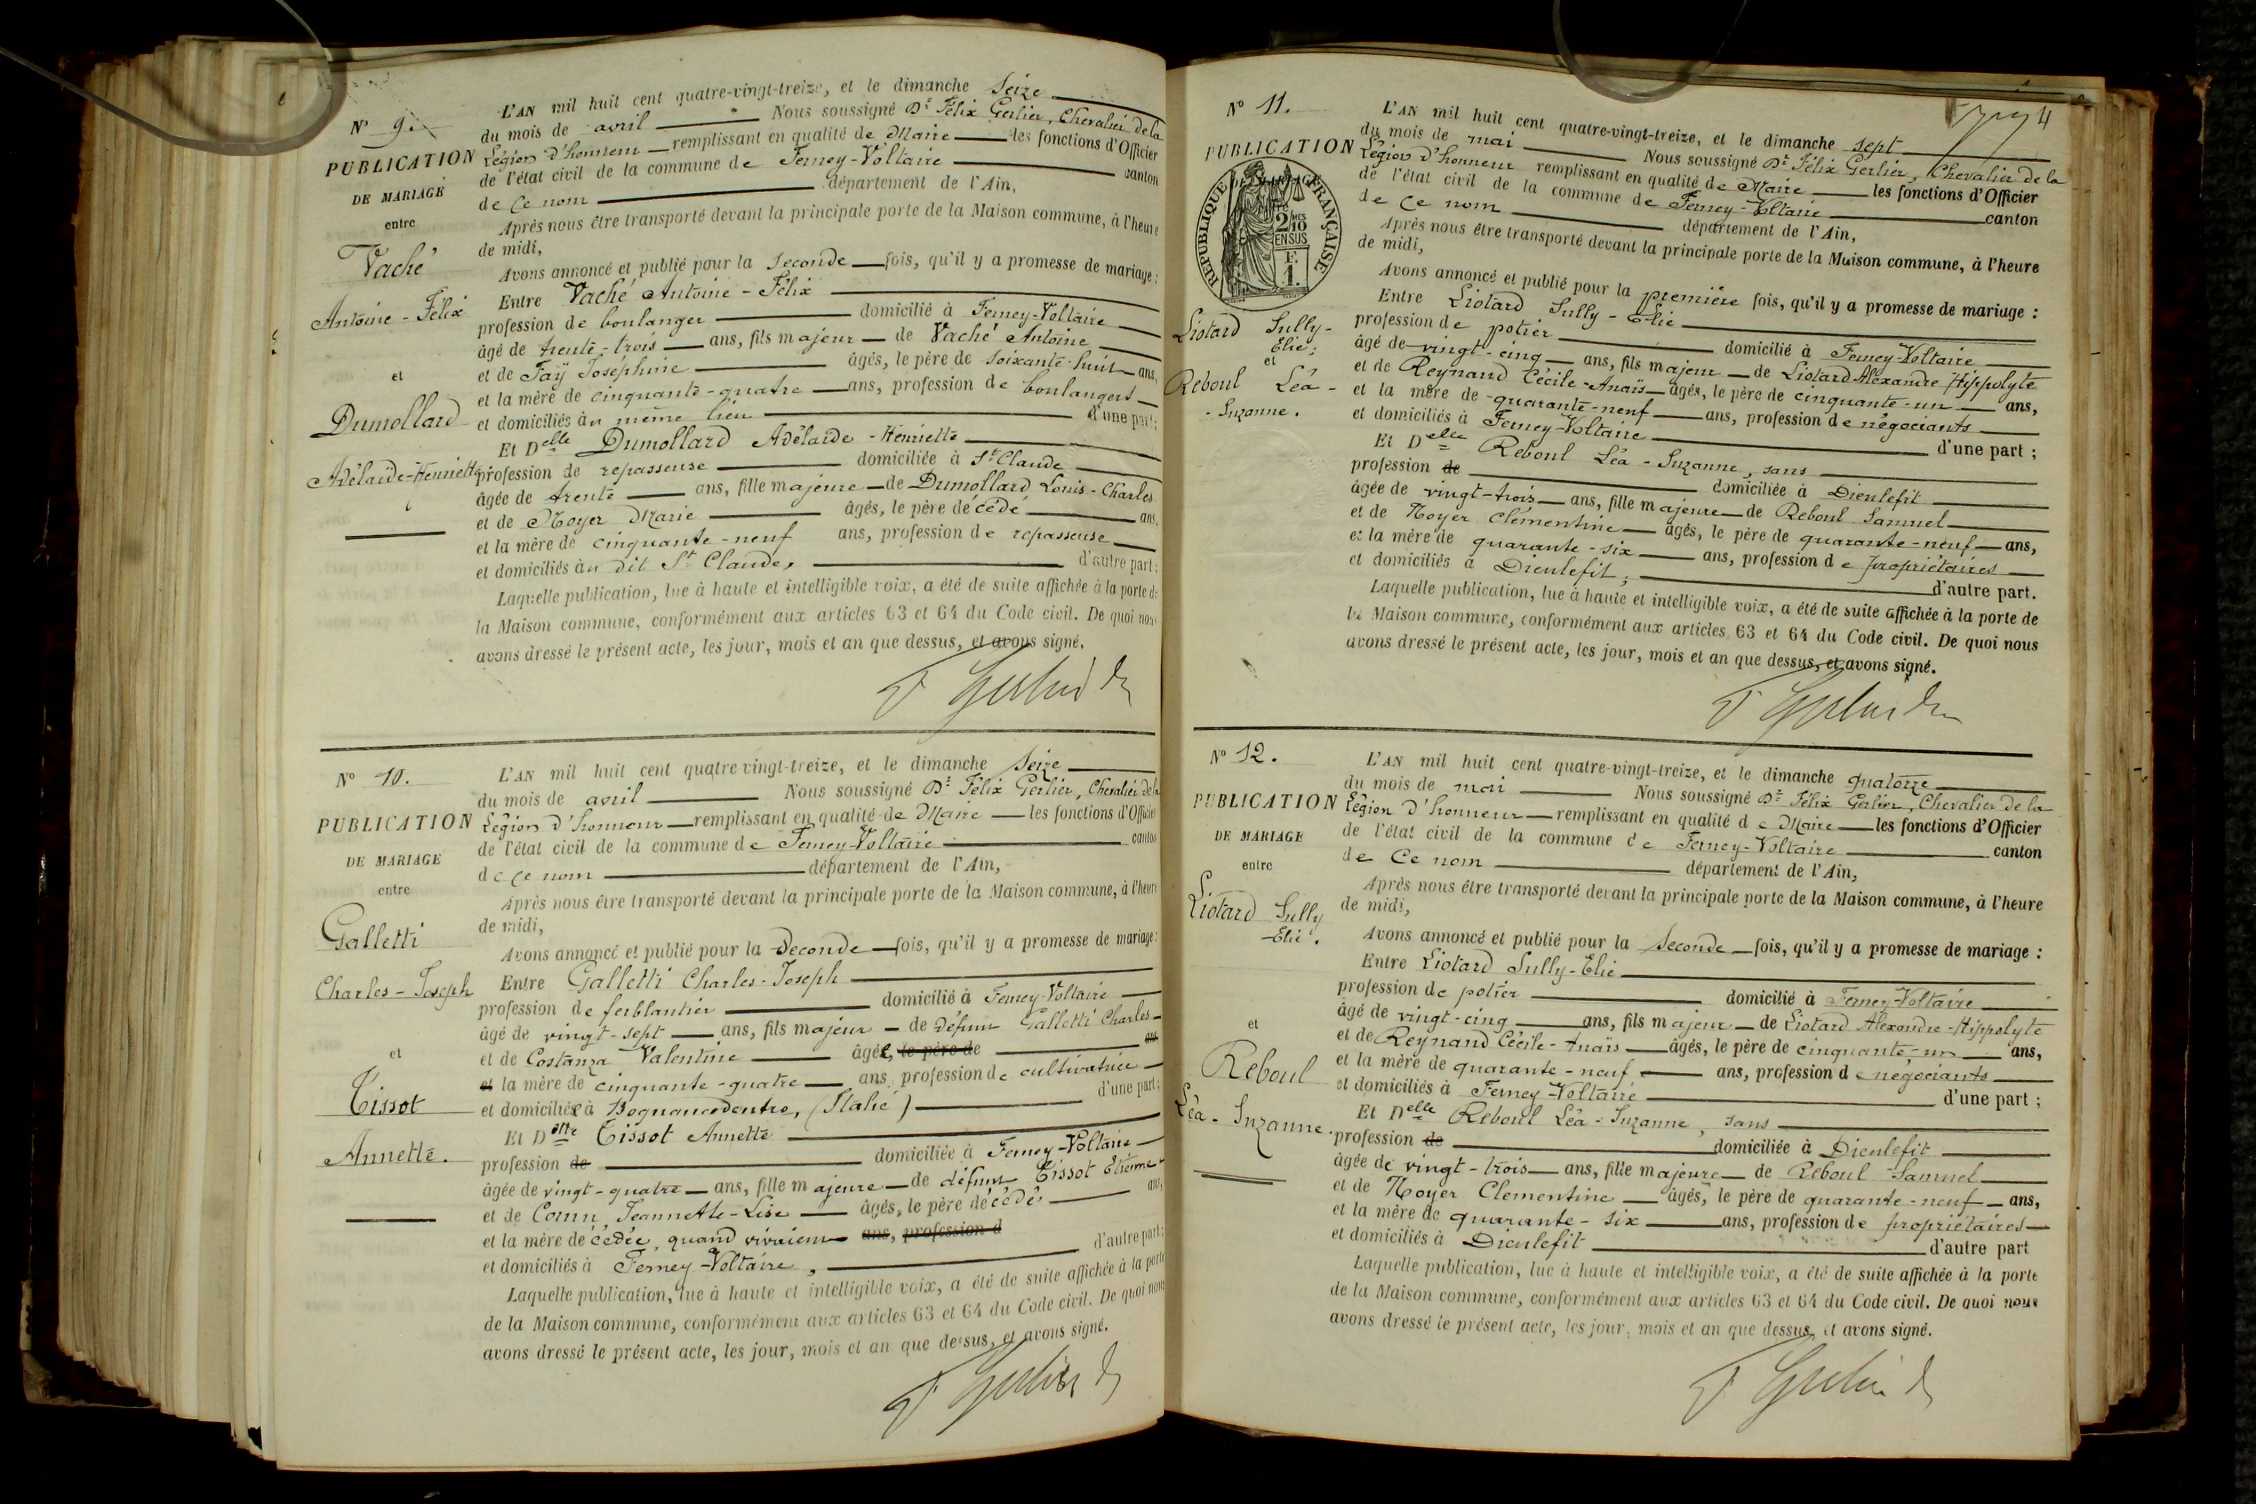 N° 9.
PUBLICATION
DE MARIAGE
entre
Vaché
Antoine - Félix
et
Dumollard
Adélaïde-Henriette
L'AN mil huit cent quatre-vingt-treize, et le dimanche Seize
du mois de avril Nous soussigné Dr Félix Gerlier, Chevalier de la
Légion d'honneur remplissant en qualité de Maire les fonctions d'Officier
de l'état civil de la commune de Ferney-Voltaire canton
de Ce nom département de l'Ain,
Après nous être transporté devant la principale porte de la Maison commune, à l'heure
de midi,
Avons annoncé et publié pour la Seconde fois, qu'il y a promesse de mariage :
Entre Vaché Antoine - Félix
profession de boulanger domicilié à Ferney-Voltaire
âgé de trente-trois ans, fils majeur de Vaché Antoine
et de Faÿ Joséphine âgés, le père de soixante-huit ans,
et la mère de cinquante-quatre ans, profession de boulangers
et domiciliés au même lieu d'une part;
Et Delle Dumollard Adélaïde - Henriette
profession de repasseuse domiciliée à St Claude
âgée de trente ans, fille majeure de Dumollard Louis-Charles
et de Moyer Marie âgés, le père décédé ans,
et la mère de cinquante-neuf ans, profession de repasseuse
et domiciliés au dit St Claude, d'autre part;
Laquelle publication, lue à haute et intelligible voix, a été de suite affichée à la porte de
la Maison commune, conformément aux articles 63 et 64 du Code civil. De quoi nous
avons dressé le présent acte, les jour, mois et an que dessus, et avons signé.
F Gerlier Dr
N° 10.
PUBLICATION
DE MARIAGE
entre
Galletti
Charles - Joseph
et
Tissot
Annette.
L'AN mil huit cent quatre-vingt-treize, et le dimanche Seize
du mois de avril Nous soussigné Dr Félix Gerlier, Chevalier de la
Légion d'honneur remplissant en qualité de Maire les fonctions d'Officier
de l'état civil de la commune de Ferney-Voltaire canton
de ce nom département de l'Ain,
Après nous être transporté devant la principale porte de la Maison commune, à l'heure
de midi,
Avons annoncé et publié pour la Seconde fois, qu'il y a promesse de mariage:
Entre Galletti Charles-Joseph
profession de ferblantier domicilié à Ferney-Voltaire
âgé de vingt-sept ans, fils majeur de défunt Galletti Charles
et de Costanza Valentine âgée, le père de ans
et la mère de cinquante-quatre ans, profession de cultivatrice
et domiciliée à Bognancodentro, (Italie) d'une part;
Et Delle Tissot Annette
profession de domiciliée à Ferney-Voltaire
âgée de vingt-quatre ans, fille majeure de défunt Tissot Etienne
et de Jeannette-Lise âgés, le père décédé ans,
et la mère décédée, quand vivaient ans, profession d
et domiciliés à Ferney-Voltaire, d'autre part;
Laquelle publication, lue à haute et intelligible voix, a été de suite affichée à la porte
de la Maison commune, conformément aux articles 63 et 64 du Code civil. De quoi nous
avons dressé le présent acte, les jour, mois et an que dessus, et avons signé.
F Gerlier Dr
4
N° 11.
PUBLICATION
DE MARIAGE
RÉPUBLIQUE FRANÇAISE
2/10
EN SUS
F.
1.
Liotard Sully-
Elie;
et
Reboul Léa -
- Suzanne.
L'AN mil huit cent quatre-vingt-treize, et le dimanche sept
du mois de mai Nous soussigné Dr Félix Gerlier, Chevalier de la
Légion d'honneur remplissant en qualité de Maire les fonctions d'Officier
de l'état civil de la commune de Ferney-Voltaire canton
de Ce nom département de l'Ain,
Après nous être transporté devant la principale porte de la Maison commune, à l'heure
de midi,
Avons annoncé et publié pour la première fois, qu'il y a promesse de mariage :
Entre Liotard Sully - Elie
profession de potier domicilié à Ferney-Voltaire
âgé de vingt-cinq ans, fils majeur de Liotard Alexandre Hippolyte
et de Reynaud Cécile-Anaïs âgés, le père de cinquante-un ans,
et la mère de quarante-neuf ans, profession de négociants
et domiciliés à Ferney-Voltaire d'une part ;
Et Delle Reboul Léa - Suzanne, sans
profession de domiciliée à Dieulefit
âgée de vingt-trois ans, fille majeure de Reboul Samuel
et de Noyer Clémentine âgés, le père de quarante-neuf ans,
et la mère de quarante-six ans, profession de propriétaires
et domiciliés à Dieulefit, d'autre part.
Laquelle publication, lue à haute et intelligible voix, a été de suite affichée à la porte de
la Maison commune, conformément aux articles 63 et 64 du Code civil. De quoi nous
avons dressé le présent acte, les jour, mois et an que dessus, et avons signé.
F Gerlier Dr
N° 12.
PUBLICATION
DE MARIAGE
entre
Liotard Sully
-Elie.
et
Reboul
Léa - Suzanne.
L'AN mil huit cent quatre-vingt-treize, et le dimanche quatorze
du mois de mai Nous soussigné Dr Félix Gerlier, Chevalier de la
Légion d'honneur remplissant en qualité de Maire les fonctions d'Officier
de l'état civil de la commune de Ferney-Voltaire canton
de Ce nom département de l'Ain,
Après nous être transporté devant la principale porte de la Maison commune, à l'heure
de midi,
Avons annoncé et publié pour la Seconde fois, qu'il y a promesse de mariage :
Entre Liotard Sully-Elie
profession de potier domicilié à Ferney-Voltaire
âgé de vingt-cinq ans, fils majeur de Liotard Alexandre-Hippolyte
et de Reynaud Cécile-Anaïs âgés, le père de cinquante-un ans,
et la mère de quarante-neuf ans, profession de négociants
et domiciliés à Ferney-Voltaire d'une part ;
Et Delle Reboul Léa-Suzanne, sans
profession de domiciliée à Dieulefit
âgée de vingt-trois ans, fille majeure de Reboul Samuel
et de Noyer Clementine âgés, le père de quarante-neuf ans,
et la mère de quarante-six ans, profession de propriétaires
et domiciliés à Dieulefit d'autre part
Laquelle publication, lue à haute et intelligible voix, a été de suite affichée à la porte
de la Maison commune, conformément aux articles 63 et 64 du Code civil. De quoi nous
avons dressé le présent acte, les jour, mois et an que dessus, et avons signé.
F Gerlier Dr